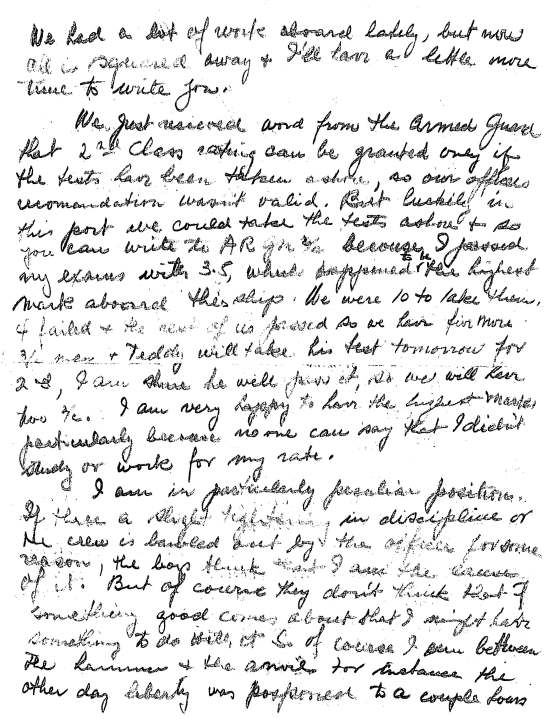 We had a lot of work aboard lately, but now
all is squared away & I'll have a little more
time to write you.
We just recieved word from the Armed Guard
that 2nd Class rating can be granted only if
the tests have been taken ashore, so our officers
recomandation wasn't valid. But luckily in
this port we could take the tests ashore & so
you can write to A R 3/c because I passed
my exams with 3.5, which happened to be the highest
mark aboard the ship. We were 10 to take them,
4 failed & the rest of us passed so we have five more
3/c men & Teddy will take his test tomorrow for
2nd, I am sure he will pass it, so we will have
two 2/c. I am very happy to have the highest marks
particularly because no one can say that I didn't
study or work for my rate.
I am in particularly peculiar position.
If there a slight tightening in discipline or
the crew is bawled out by the officer for some
reason, the boys think that I am the cause
of it. But of course they don't think that if
something good comes about that I might have
something to do with it. So of course I am between
the hammer & the anvil. For instance the
other day liberty was postponed to a couple hours